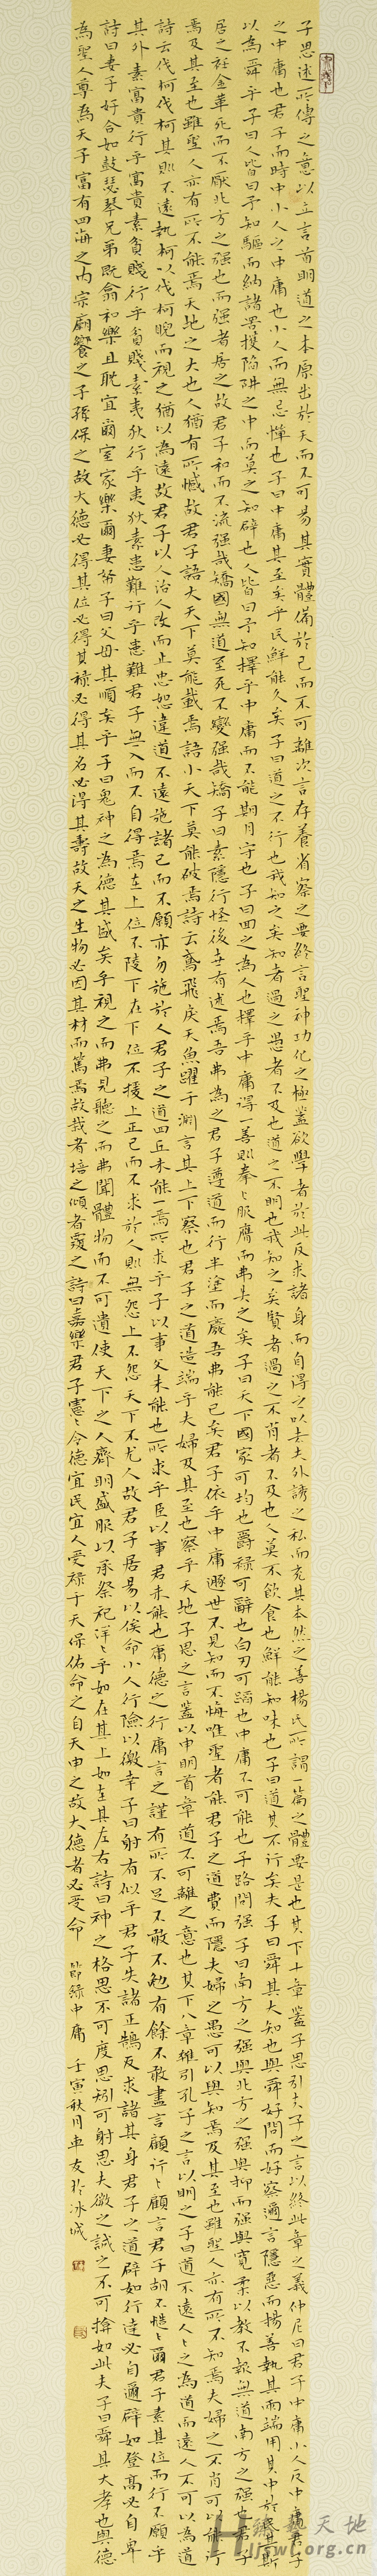 子思述所傳之意以立言首明道之本原出於天而不可易其實體備於己而不可離次言存養省察之要終言聖神功化之極蓋欲學者於此反求諸身而自得之以去夫外誘之私而充其本然之善楊氏所謂一篇之體要是也其下十章蓋子思引夫子之言以終此章之義仲尼曰君子中庸小人反中庸君子
之中庸也君子而時中小人之中庸也小人而無忌憚也子曰中庸其至矣乎民鮮能久矣子曰道之不行也我知之矣知者過之愚者不及也道之不明也我知之矣賢者過之不肖者不及也人莫不飲食也鮮能知味也子曰道其不行矣夫子曰舜其大知也與舜好問而好察邇言隱惡而揚善執其兩端用其中於民其斯
以為舜乎子曰人皆曰予知驅而納諸罟擭陷阱之中而莫之知辟也人皆曰予知擇乎中庸而不能期月守也子曰回之為人也擇乎中庸得一善則拳〻服膺而弗失之矣子曰天下國家可均也爵祿可辭也白刃可蹈也中庸不可能也子路問强子曰南方之强與北方之强與抑而强與寬柔以教不報無道南方之强也君子
居之衽金革死而不厭北方之强也而强者居之故君子和而不流强哉矯國無道至死不變强哉矯子曰素隱行怪後世有述焉吾弗為之君子遵道而行半塗而廢吾弗能已矣君子依乎中庸遯世不見知而不悔唯聖者能君子之道費而隱夫婦之愚可以與知焉及其至也雖聖人亦有所不知焉夫婦之不肖可以能行
焉及其至也雖聖人亦有所不能焉天地之大也人猶有所憾故君子語大天下莫能載焉語小天下莫能破焉詩云鳶飛戾天魚躍于淵言其上下察也君子之道造端乎夫婦及其至也察乎天地子思之言蓋以申明首章道不可離之意也其下八章雜引孔子之言以明之子曰道不遠人〻之為道而遠人不可以為道
詩云伐柯伐柯其則不遠執柯以伐柯睨而視之猶以為遠故君子以人治人改而止忠恕違道不遠施諸己而不願亦勿施於人君子之道四丘未能一焉所求乎子以事父未能也所求乎臣以事君未能也庸德之行庸言之謹有所不足不敢不勉有餘不敢盡言顧行〻顧言君子胡不慥〻爾君子素其位而行不願乎
其外素富貴行乎富貴素貧賤行乎貧賤素夷狄行乎夷狄素患難行乎患難君子無入而不自得焉在上位不陵下在下位不援上正己而不求於人則無怨上不怨天下不尤人故君子居易以俟命小人行險以徼幸子曰射有似乎君子失諸正鵠反求諸其身君子之道辟如行遠必自邇辟如登高必自卑
詩曰妻子好合如鼓瑟琴兄弟既翕和樂且耽宜爾室家樂爾妻帑子曰父母其順矣乎子曰鬼神之為德其盛矣乎視之而弗見聽之而弗聞體物而不可遺使天下之人齊明盛服以承祭祀洋〻乎如在其上如在其左右詩曰神之格思不可度思矧可射思夫微之誠之不可揜如此夫子曰舜其大孝也與德
為聖人尊為天子富有四海之內宗廟饗之子孫保之故大德必得其位必得其祿必得其名必得其壽故天之生物必因其材而篤焉故栽者培之傾者覆之詩曰嘉樂君子憲〻令德宜民宜人受祿于天保佑命之自天申之故大德者必受命 節錄中庸 壬寅秋月車友於冰城
天地
Hljfwl.org.cn